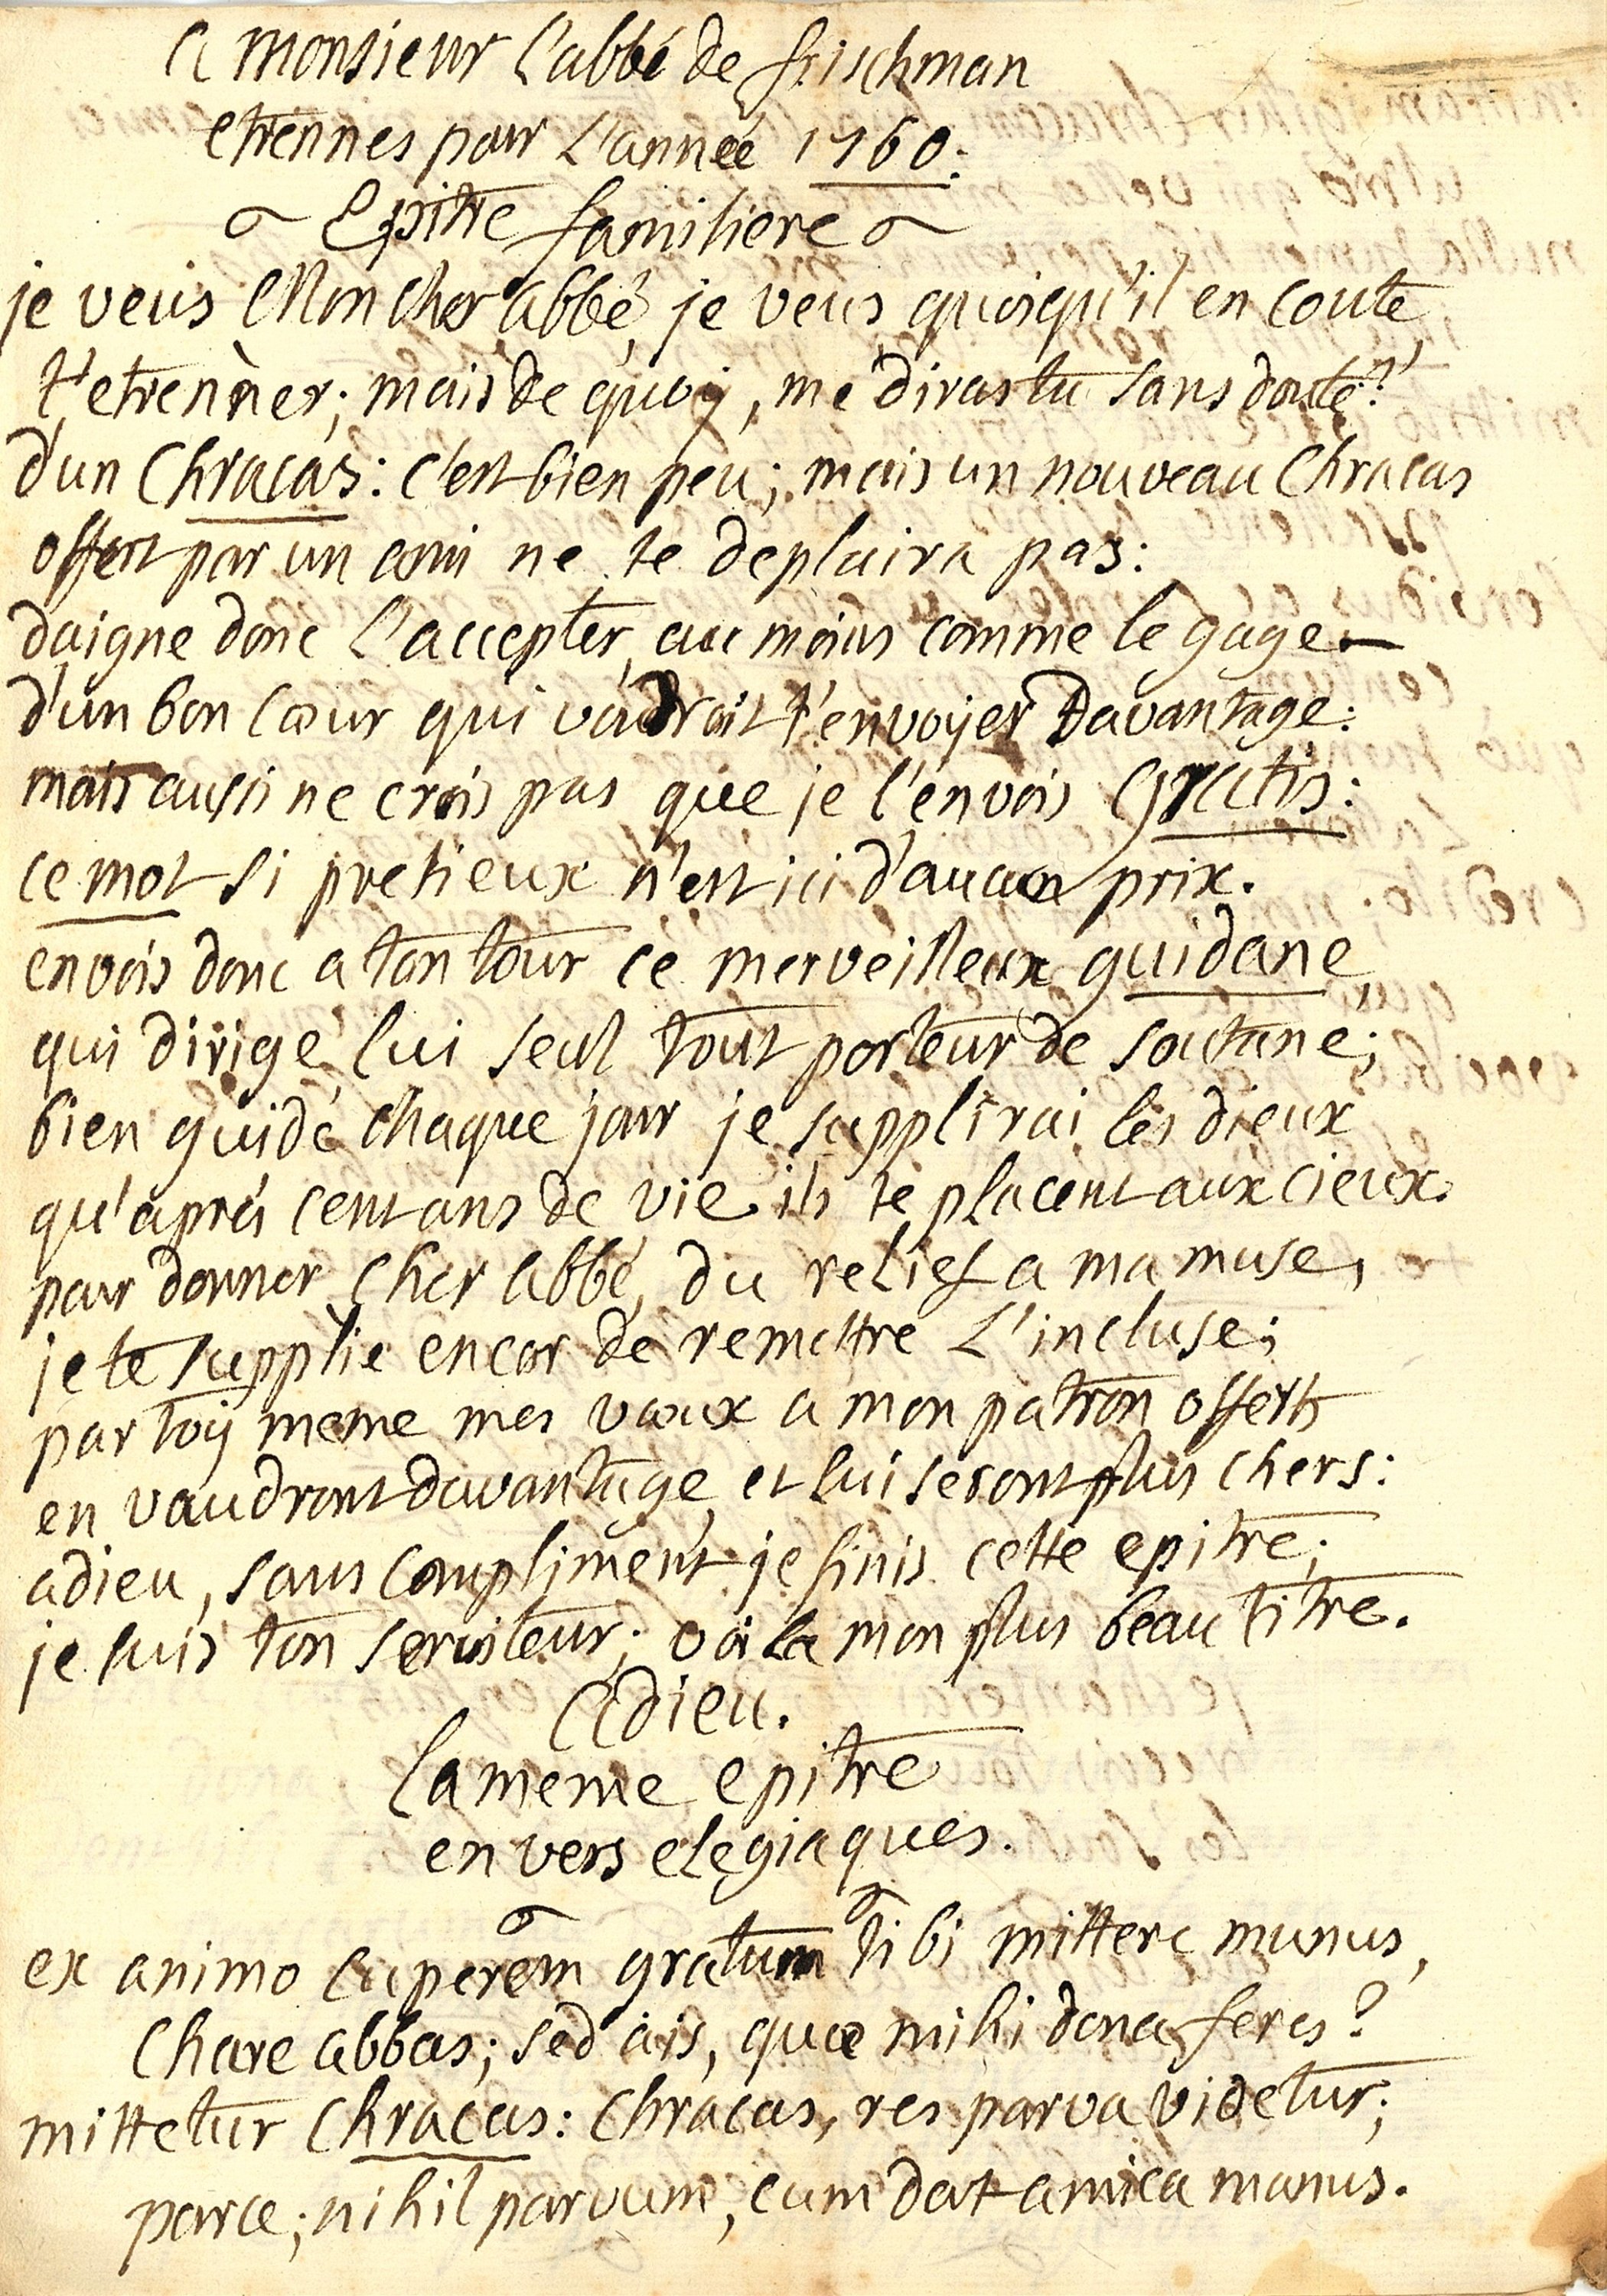 A monsieur l'abbé de frischman
etrennes pour L'année 1760:
Epitre familiere
je veus Mon cher abbé, je veus quoiqu'il en coute,
t'etrenner; mais de quoy, me diras tu sans doute?
d'un Chracas: c'est bien peu; mais un nouveau Chracas
offert par un ami ne te deplaira pas:
daigne donc l'accepter, au moins comme le gage
d'un bon cœur qui voudroit t'envoyer Davantage:
mais aussi ne crois pas que je l'envois Gratis:
ce mot si pretieux n'est ici d'aucun prix.
envois donc a ton tour ce merveilleux guidane,
qui dirige lui seul tout porteur de soutane;
bien guidé chaque jour je supplirai les dieux
qu'aprés cent ans de vie ils te placent aux cieux.
pour donner cher abbé, du relief a ma muse,
je te supplie encor de remettre L'incluse;
par toy meme mes vœux a mon patron offerts
en vaudront davantage, et lui seront plus chers:
adieu, sans compliment je finis cette epitre;
je suis ton serviteur; voila mon plus beau titre.
Adieu.
la meme epitre
en vers elegiaques.
ex animo cuperem gratum tibi mittere munus,
Chare abbas; sed ais, quæ mihi dona feres?
mittetur Chracas: Chracas, res parva videtur;
parce; nihil parvum, cum dat amica manus.